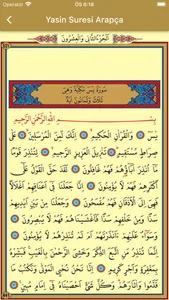 ÖS 6:16
Yasin Suresi Arapça
الجزء الثاني والعشرون
سورة يس مكية وهي
ثلاث وثمانون آية
بِسْمِ اللَّهِ الرَّحْمَٰنِ الرَّحِيمِ
يس وَالْقُرْآنِ الْحَكِيمِ إِنَّكَ لَمِنَ الْمُرْسَلِينَ عَلَى
صِرَاطٍ مُسْتَقِيمٍ تَنْزِيلَ الْعَزِيزِ الرَّحِيمِ لِتُنْذِرَ قَوْمًا
مَا أُنْذِرَ آبَاؤُهُمْ فَهُمْ غَافِلُونَ لَقَدْ حَقَّ الْقَوْلُ عَلَى
أَكْثَرِهِمْ فَهُمْ لَا يُؤْمِنُونَ إِنَّا جَعَلْنَا فِي أَعْنَاقِهِمْ
أَغْلَالًا فَهِيَ إِلَى الْأَذْقَانِ فَهُمْ مُقْمَحُونَ وَجَعَلْنَا
مِنْ بَيْنِ أَيْدِيهِمْ سَدًّا وَمِنْ خَلْفِهِمْ سَدًّا فَأَغْشَيْنَاهُمْ فَهُمْ لَا يُبْصِرُونَ
وَسَوَاءٌ عَلَيْهِمْ أَأَنْذَرْتَهُمْ أَمْ لَمْ تُنْذِرْهُمْ لَا يُؤْمِنُونَ
إِنَّمَا تُنْذِرُ مَنِ اتَّبَعَ الذِّكْرَ وَخَشِيَ الرَّحْمَٰنَ بِالْغَيْبِ فَبَشِّرْهُ
بِمَغْفِرَةٍ وَأَجْرٍ كَرِيمٍ إِنَّا نَحْنُ نُحْيِي الْمَوْتَى وَنَكْتُبُ مَا
قَدَّمُوا وَآثَارَهُمْ وَكُلَّ شَيْءٍ أَحْصَيْنَاهُ فِي إِمَامٍ مُبِينٍ